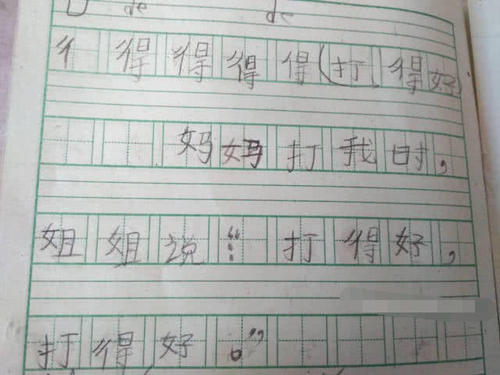 de de
彳得得得得(打得好)
妈妈打我时,
姐姐说:“打得好,
打得好。”